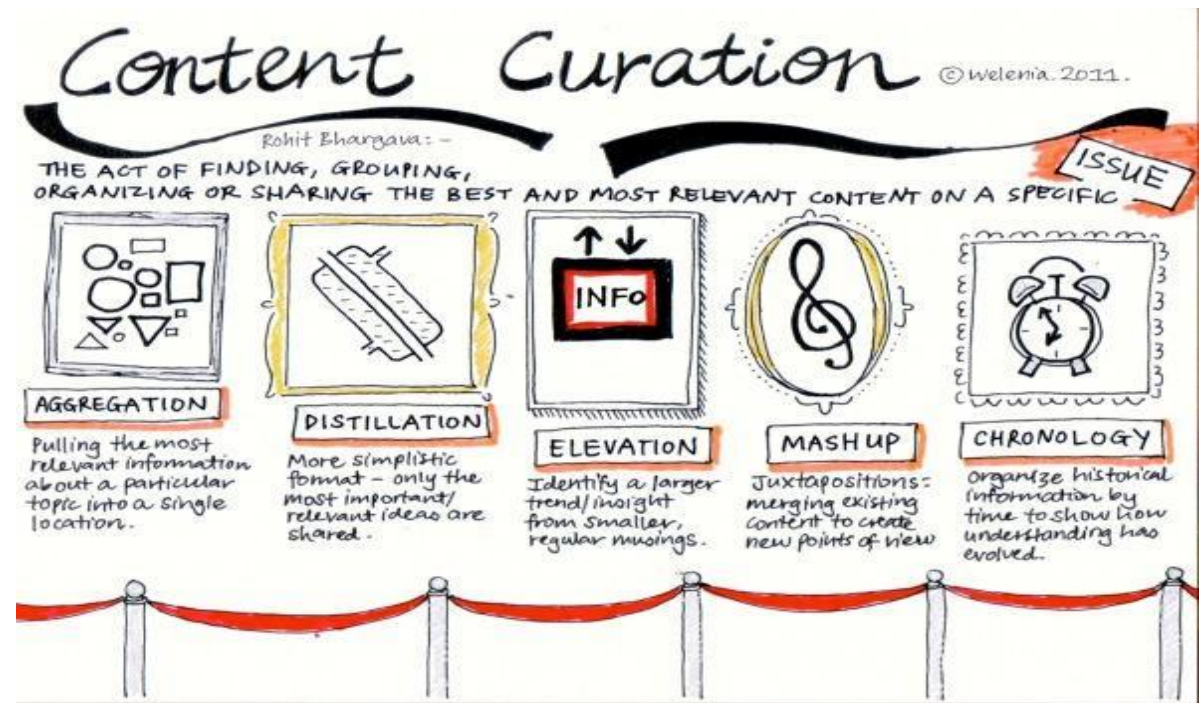 Content Curation © Welenia 2011.
Rohit Bhargava:-
THE ACT OF FINDING, GROUPING,
ORGANIZING OR SHARING THE BEST AND MOST RELEVANT CONTENT ON A SPECIFIC
ISSUE
AGGREGATION
Pulling the most
relevant information
about a particular
topic into a single
location.
DISTILLATION
More simplistic
format – only the
most important/
relevant ideas are
shared.
INFO
ELEVATION
Identify a larger
trend/insight
from smaller,
regular musings.
MASHUP
Juxtapositions:
merging existing
content to create
new points of view
CHRONOLOGY
Organize historical
information by
time to show how
understanding has
evolved.